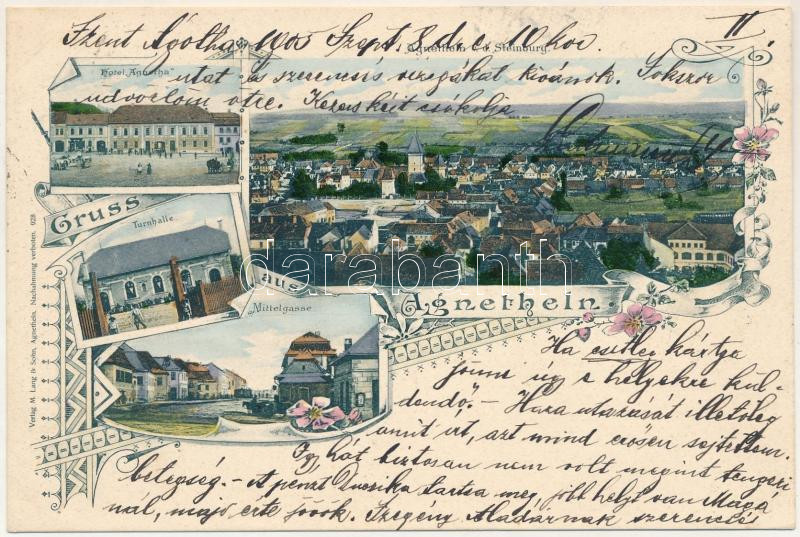 II
Szent Ágotha 1905 Szept 8 d. e. 10 hor.
Agnetheln v. d. Steinburg.
Hotel „Agnetha"
utat a szerencsés vizsgákat kivánok. Sokszor
üdvözlöm őtre. Kezeskéit csókolja
Gruss
Turnhalle
aus
Agnetheln.
Mittelgasse
darabanth
Verlag M. Lang & Sohn, Agnetheln. Nachahmung verboten. 928
Ha esetleg kártya
jönne úgy e helyekre kül-
dendő." - Haza utazását illetőleg
amit írt, azt mind erősen sejtettem.
Így hát biztosan nem volt megint tengeri
betegség. - A pénzt Incsika tartsa meg, jobb helyt van Magá
nál, majd érte jövök. Szegény Aladárnak szerencsés